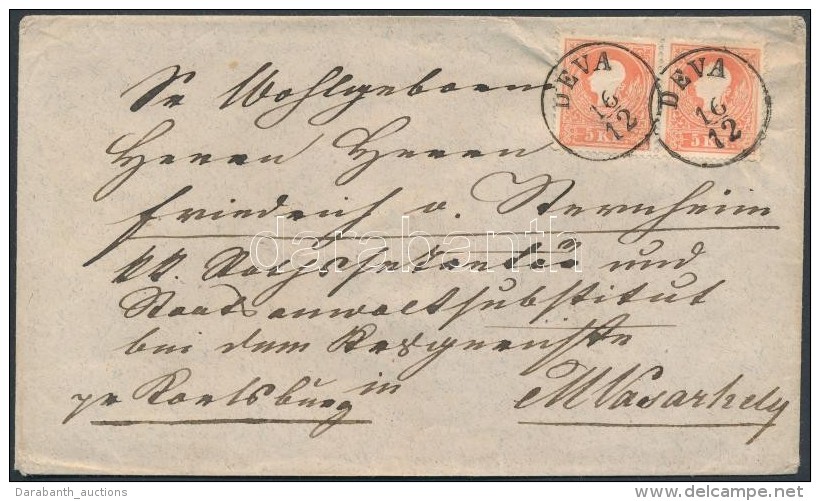 DEVA
16
12
DEVA
16
12
5 K
5 K
Sr Wohlgeboren
Herrn Herrn
Friedrich v. Sternheim
kk. und
Staatsanwaltsubstitut
bei dem
pr Karlsburg in MVasarhely
darabanth
Darabanth_auctions
www.delcampe.net